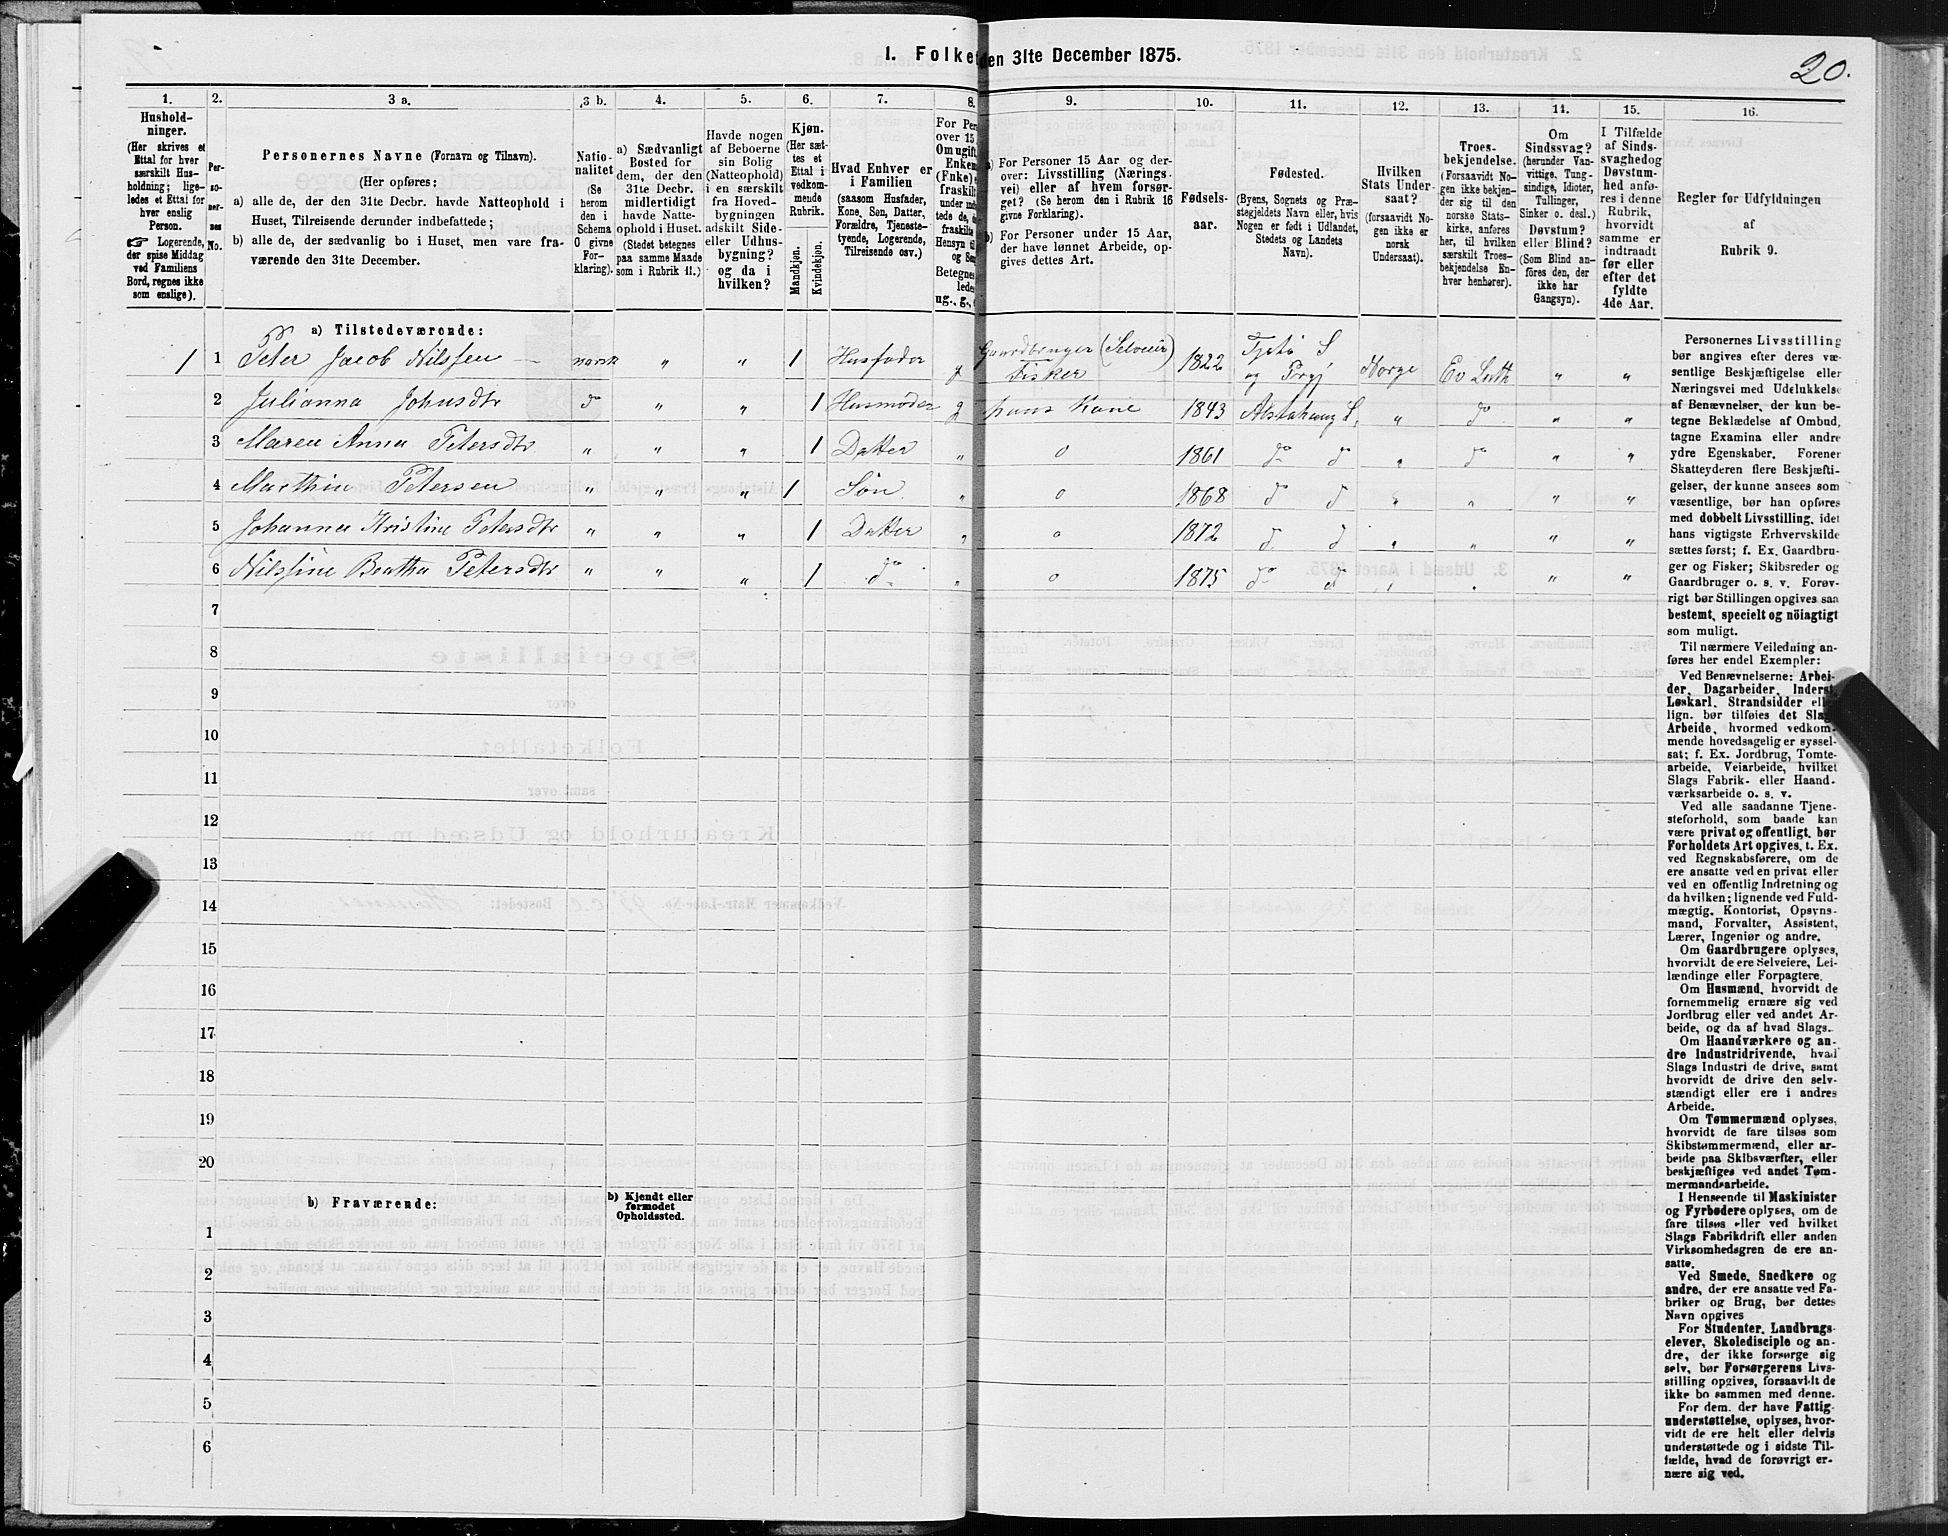 1. Folket den 31te December 1875.
20.
1.
Hushold-
ninger.
(Her skrives et
Ettal for hver
særskilt Hus-
holdning; lige-
ledes et Ettal for
hver enslig
Person.
☞ Logerende,
der spise Middag
ved Familiens
Bord, regnes ikke
som enslige).
2.
Per-
so-
ner-
nes
No.
3 a.
Personernes Navne (Fornavn og Tilnavn).
(Her opføres:
a) alle de, der den 31te Decbr. havde Natteophold i
Huset, Tilreisende derunder indbefattede;
b) alle de, der sædvanlig bo i Huset, men vare fra-
værende den 31te December.
3 b.
Natio-
nalitet
(Se
herom
den i
Schema
O givne
For-
klaring).
4.
a) Sædvanligt
Bosted for
dem, der den
31te Decbr.
midlertidigt
havde Natte-
ophold i Huset.
(Stedet betegnes
paa samme Maade
som i Rubrik 11.)
5.
Havde nogen
af Beboerne
sin Bolig
(Natteophold)
i en særskilt
fra Hoved-
bygningen
adskilt Side-
eller Udhus-
bygning?
og da i
hvilken?
6.
Kjøn.
(Her sæt-
tes et
Ettal i
vedkom-
mende
Rubrik.
Mandkjøn.
Kvindekjøn.
7.
Hvad Enhver er
i Familien
(saasom Husfader,
Kone, Søn, Datter,
Forældre, Tjeneste-
tyende, Logerende,
Tilreisende osv.)
8.
For Per
over 15
Om ugift,
Enkem
(Enke)
fraskilt
under
tede de,
fraskilte
Hensyn til
og Se
Betegnes
lede
ug., g.,
9.
a) For Personer 15 Aar og der-
over: Livsstilling (Nærings-
vei) eller af hvem forsør-
get? (Se herom den i Rubrik 16
givne Forklaring).
b) For Personer under 15 Aar,
der have lønnet Arbeide, op-
gives dettes Art.
10.
Fødsels-
aar.
11.
Fødested.
(Byens, Sognets og Præ-
stegjeldets Navn eller, hvis
Nogen er født i Udlandet,
Stedets og Landets
Navn).
12.
Hvilken
Stats Under-
saat?
(forsaavidt No-
gen ikke er
norsk
Undersaat).
13.
Troes-
bekjendelse.
(Forsaavidt No-
gen ikke bekjen-
der sig til den
norske Stats-
kirke, anføres
her, til hvilken
særskilt Troes-
bekjendelse En-
hver henhører).
14.
Om
Sindssvag?
(herunder Van-
vittige, Tung-
sindige, Idioter,
Tullinger,
Sinker o. desl.)
Døvstum?
eller Blind?
(Som Blind an-
føres den, der
ikke har
Gangsyn).
15.
I Tilfælde
af Sinds-
svaghedog
Døvstum-
hed anfø-
res i denne
Rubrik,
hvorvidt
samme er
indtraadt
før eller
efter det
fyldte
4de Aar.
16.
Regler for Udfyldningen
af
Rubrik 9.
a) Tilstedeværende:
1 1 Peter Jacob Nilssen norsk „ „ 1 Husfader g Gaardbruger (Selveier) Fisker 1822 Tjøtø S og Prgj Norge Ev Luth „ „
2 Julianna Johnsdtr do „ „ 1 Husmoder g hans Kone 1843 Alstahaug S. „ do „ „
3 Maren Anna Petersdtr „ „ „ 1 Datter „ 0 1861 do do „ do „ „
4 Marthin Petersen „ „ „ 1 Søn. „ 0 1868 d d „ „ „ „
5 Johanna Kristine Petersdtr „ „ „ 1 Datter „ 0 1872 d d „ „ „ „
6 Nilssine Beatha Petersdtr „ „ „ 1 do „ 0 1875 do d „ „ „ „
7
8
9
10
11
12
13
14
15
16
17
18
19
20
b) Fraværende:
b) Kjendt eller
formodet
Opholdssted.
1
2
3
4
5
6
Personernes Livsstilling
bør angives efter deres væ-
sentlige Beskjæftigelse eller
Næringsvei med Udelukkelse
af Benævnelser, der kun be-
tegne Beklædelse af Ombud,
tagne Examina eller andre
ydre Egenskaber. Forener
Skatteyderen flere Beskjæfti-
gelser, der kunne ansees som
væsentlige, bør han opføres
med dobbelt Livsstilling, idet
hans vigtigste Erhvervskilde
sættes først; f. Ex. Gaardbru-
ger og Fisker; Skibsreder og
Gaardbruger o. s. v. Forøv-
rigt bør Stillingen opgives saa
bestemt, specielt og nöiagtigt
som muligt.
Til nærmere Veiledning an-
føres her endel Exempler:
Ved Benævnelserne: Arbei-
der, Dagarbeider, Inderst,
Løskarl, Strandsidder eller
lign. bør tilføies det Slags
Arbeide, hvormed vedkom-
mende hovedsagelig er syssel-
sat; f. Ex. Jordbrug, Tomte-
arbeide, Veiarbeide, hvilket
Slags Fabrik- eller Haand-
værksarbeide o. s. v.
Ved alle saadanne Tjene-
steforhold, som baade kan
være privat og offentligt, bør
Forholdets Art opgives, t. Ex.
ved Regnskabsførere, om de
ere ansatte ved en privat eller
ved en offentlig Indretning og
da hvilken; lignende ved Fuld-
mægtig, Kontorist, Opsyns-
mand, Forvalter, Assistent,
Lærer, Ingeniør og andre.
Om Gaardbrugere oplyses,
hvorvidt de ere Selveiere, Lei-
lændinge eller Forpagtere.
Om Husmænd, hvorvidt de
fornemmelig ernære sig ved
Jordbrug eller ved andet Ar-
beide, og da af hvad Slags.
Om Haandværkere og an-
dre Industridrivende, hvad
Slags Industri de drive, samt
hvorvidt de drive den selv-
stændigt eller ere i andres
Arbeide.
Om Tømmermænd oplyses,
hvorvidt de fare tilsøs som
Skibstømmermænd, eller ar-
beide paa Skibsværfter, eller
beskjæftiges ved andet Tøm-
mermandsarbeide.
I Henseende til Maskinister
og Fyrbødere oplyses, om de
fare tilsøs eller ved hvilket
Slags Fabrikdrift eller anden
Virksomhedsgren de ere an-
satte.
Ved Smede, Snedkere og
andre, der ere ansatte ved Fa-
briker og Brug, bør dettes
Navn opgives
For Studenter, Landbrugs-
elever, Skoledisciple og an-
dre, der ikke forsørge sig
selv, bør Forsørgerens Livs-
stilling opgives, forsaavidt de
ikke bo sammen med denne.
For dem, der have Fattig-
understøttelse, oplyses, hvor-
vidt de ere helt eller delvis
understøttede og i sidste Til-
fælde, hvad de forøvrigt er-
nære sig ved.